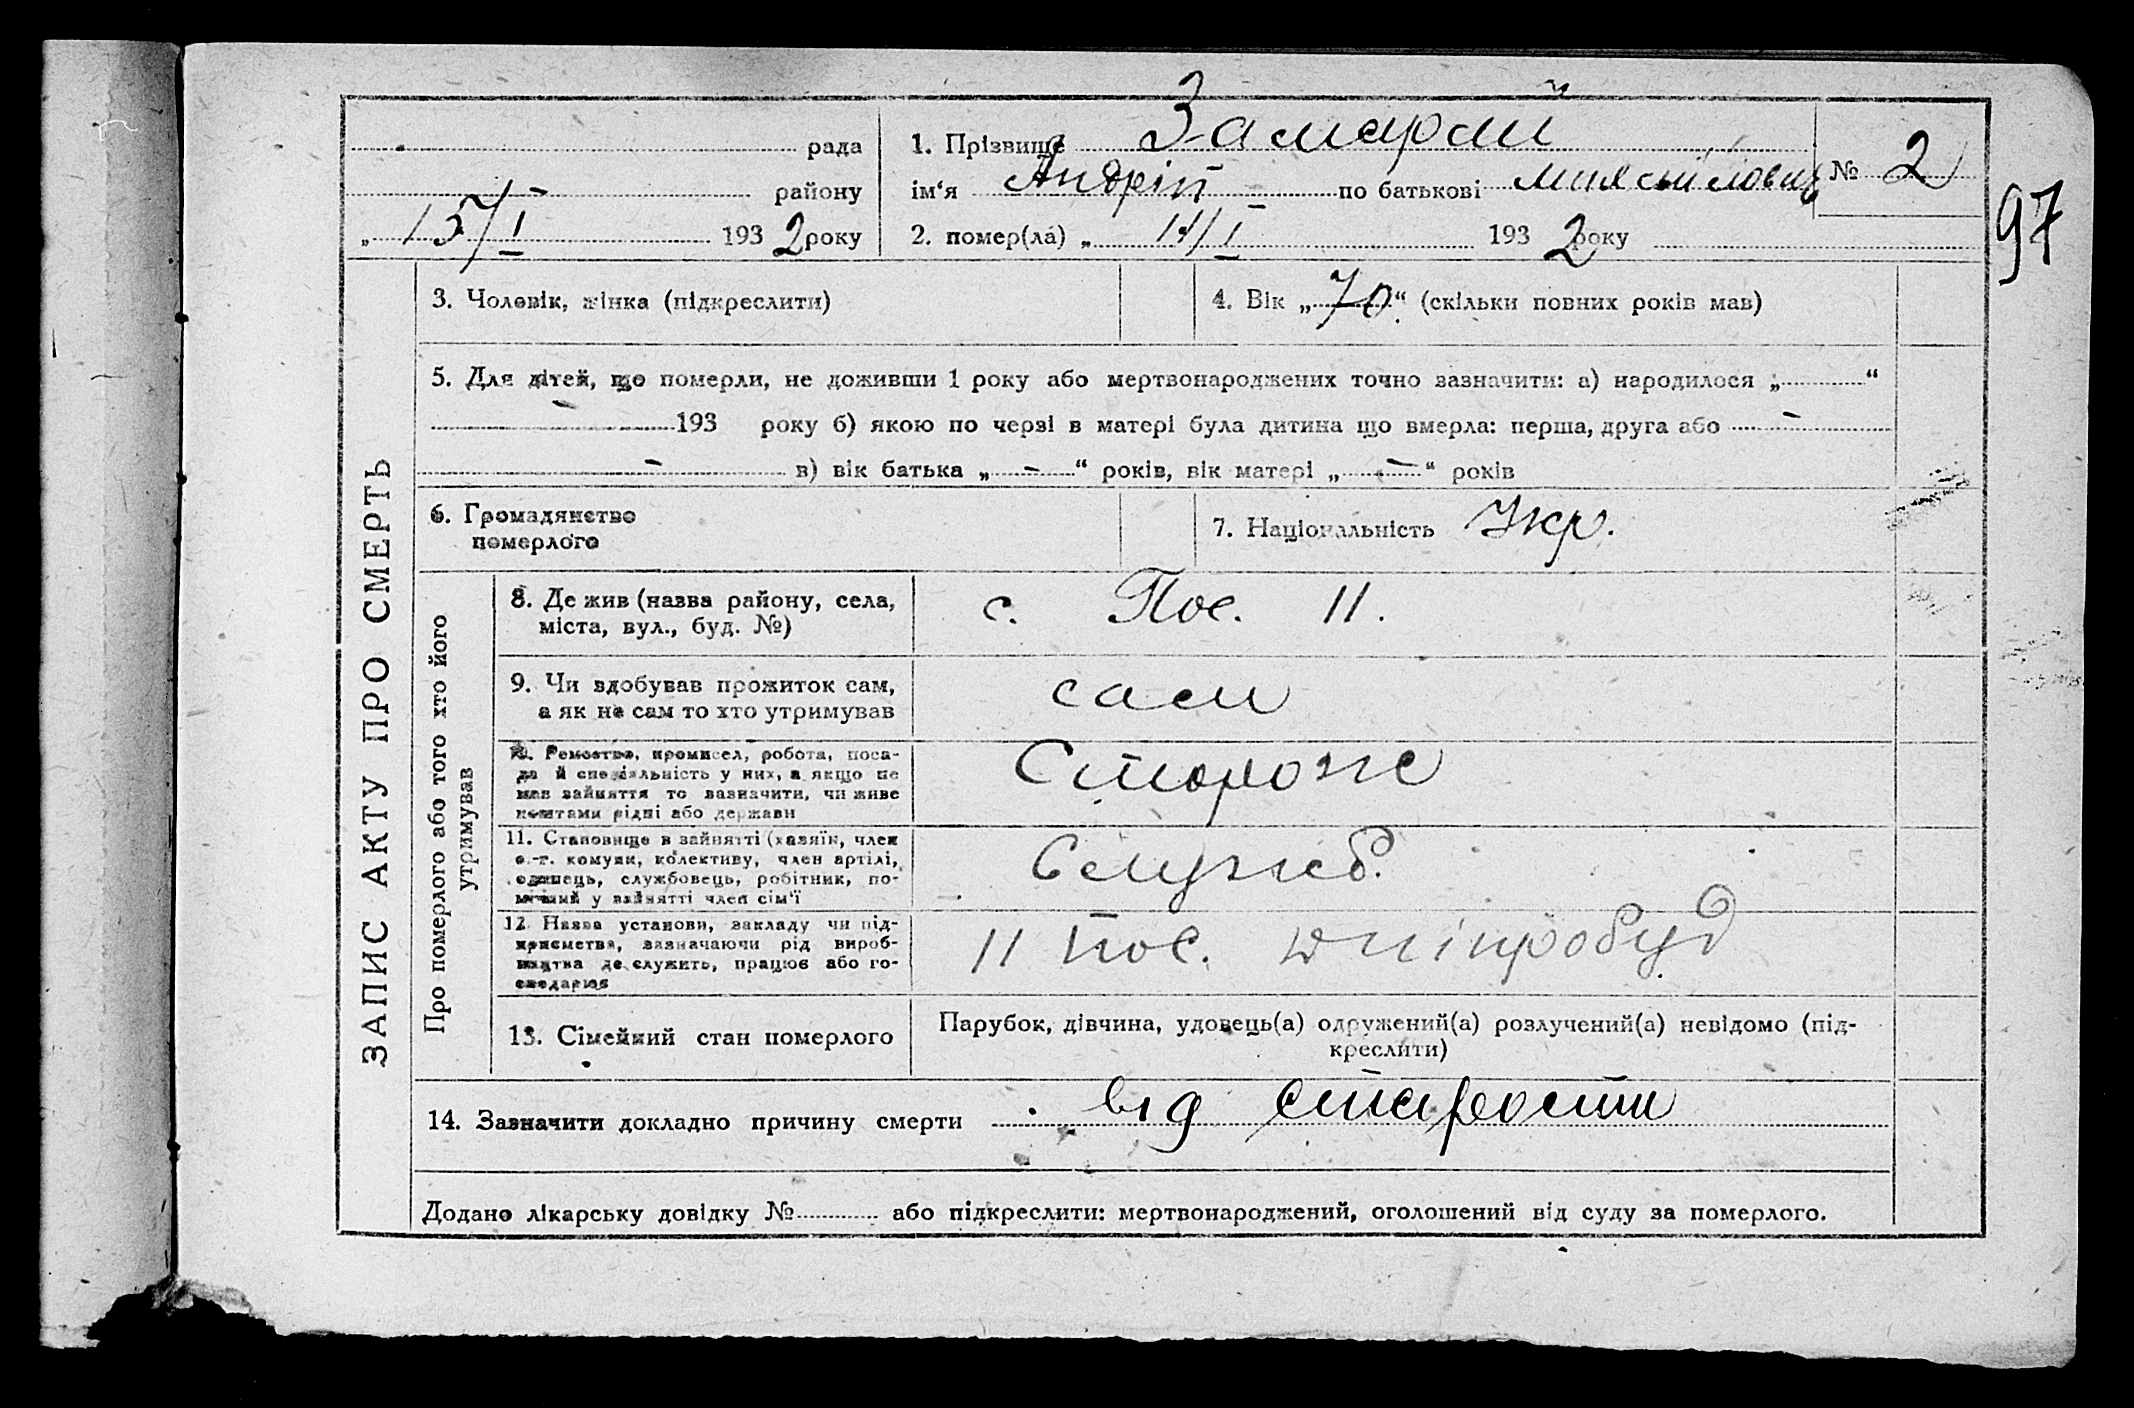 рада
району
„ 15/I 1932 року
1. Прізвище Замарай
ім'я Андрій по батькові
2. помер(ла) „ 14/I 1932 року
№ 2
97
ЗАПИС АКТУ ПРО СМЕРТЬ
3. Чоловік, жінка (підкреслити)
4. Вік „70“ (скільки повних років мав)
5. Для дітей, що померли, не доживши 1 року або мертвонароджених точно зазначити: а) народилося „ “
193 року б) якою по черзі в матері була дитина що вмерла: перша, друга або –
– в) вік батька „ – “ років, вік матері „ – “ років
6. Громадянство
померлого
7. Національність Укр.
Про померлого або того хто його
утримував
8. Де жив (назва району, села,
міста, вул., буд. №)
с. Пос. 11.
9. Чи здобував прожиток сам,
а як не сам то хто утримував
сам
10. Ремество, промисел, робота, поса-
да й спеціяльність у них, а якщо не
мав зайняття то зазначити, чи живе
коштами рідні або держави
Сторож
11. Становище в зайнятті (хазяїн, член
с.-г. комуни, колективу, член артілі,
одинець, службовець, робітник, по-
мічний у зайнятті член сім'ї
Служб.
12. Назва установи, закладу чи під-
приємства, зазначаючи рід вироб-
ництва де служить, працює або го-
сподарює
11 пос. Дніпробуд
13. Сімейний стан померлого
Парубок, дівчина, удовець(а) одружений(а) розлучений(а) невідомо (під-
креслити)
14. Зазначити докладно причину смерти від старости
Додано лікарську довідку № або підкреслити: мертвонароджений, оголошений від суду за померлого.